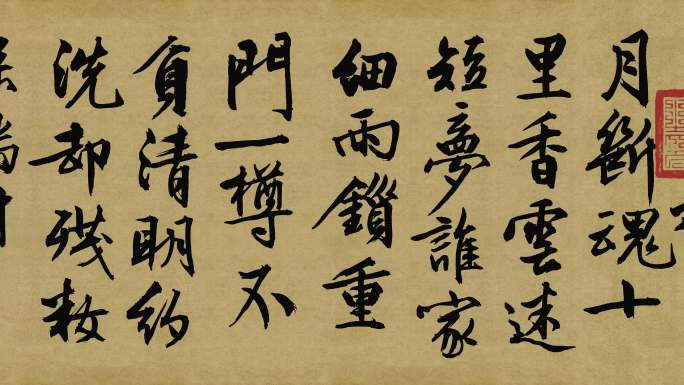 月斷魂十
里香雲迷
短夢誰家
細雨鎖重
門一樽不
負清明約
洗却殘妝